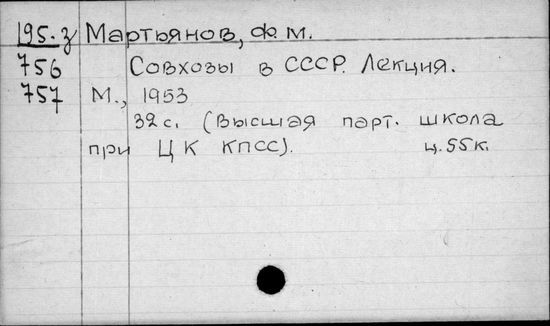 195.з Мартьянов, Ф.М.
756 Совхозы в СССР. Лекция.
757 М., 1953
32 с. (Высшая парт. школа
при ЦК КПСС). ц. 55 к.